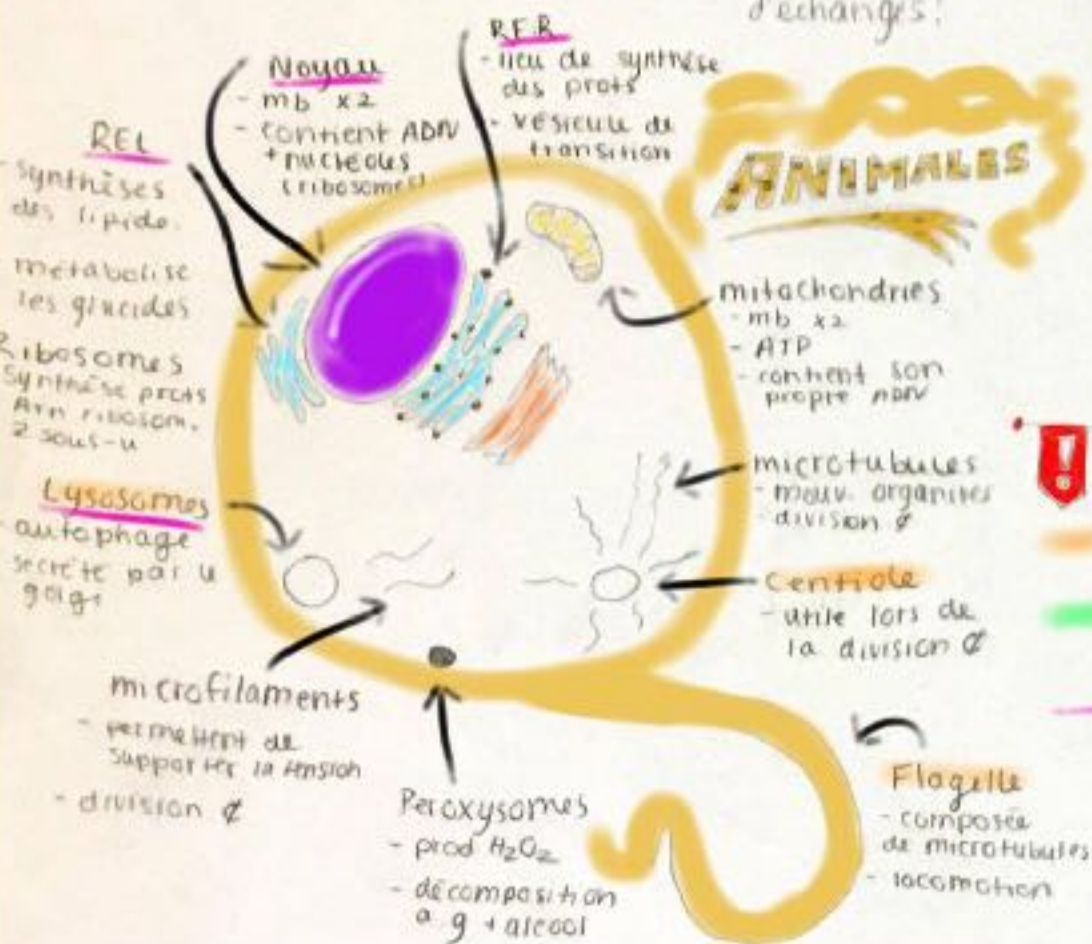 d'échanges!
ANIMALES
Noyau
- mb x2
- contient ADN
+ nucléolus
(ribosomes)
RER
- lieu de synthèse
des prots
- vésicule de
transition
REL
- synthèses
des lipide.
métabolise
les glucides
Ribosomes
Synthèse prots
Arn ribosom.
2 sous-u
Lysosomes
- autophage
secrète par le
golgi
mitochondries
- mb x2
- ATP
- contient son
propre ADN
microtubules
- mouv. organites
- division ¢
Centiole
- utile lors de
la division ¢
microfilaments
- permettent de
supporter la tension
- division ¢
Peroxysomes
- prod H₂O₂
- décomposition
a.g + alcool
Flagelle
- composée
de microtubules
- locomotion